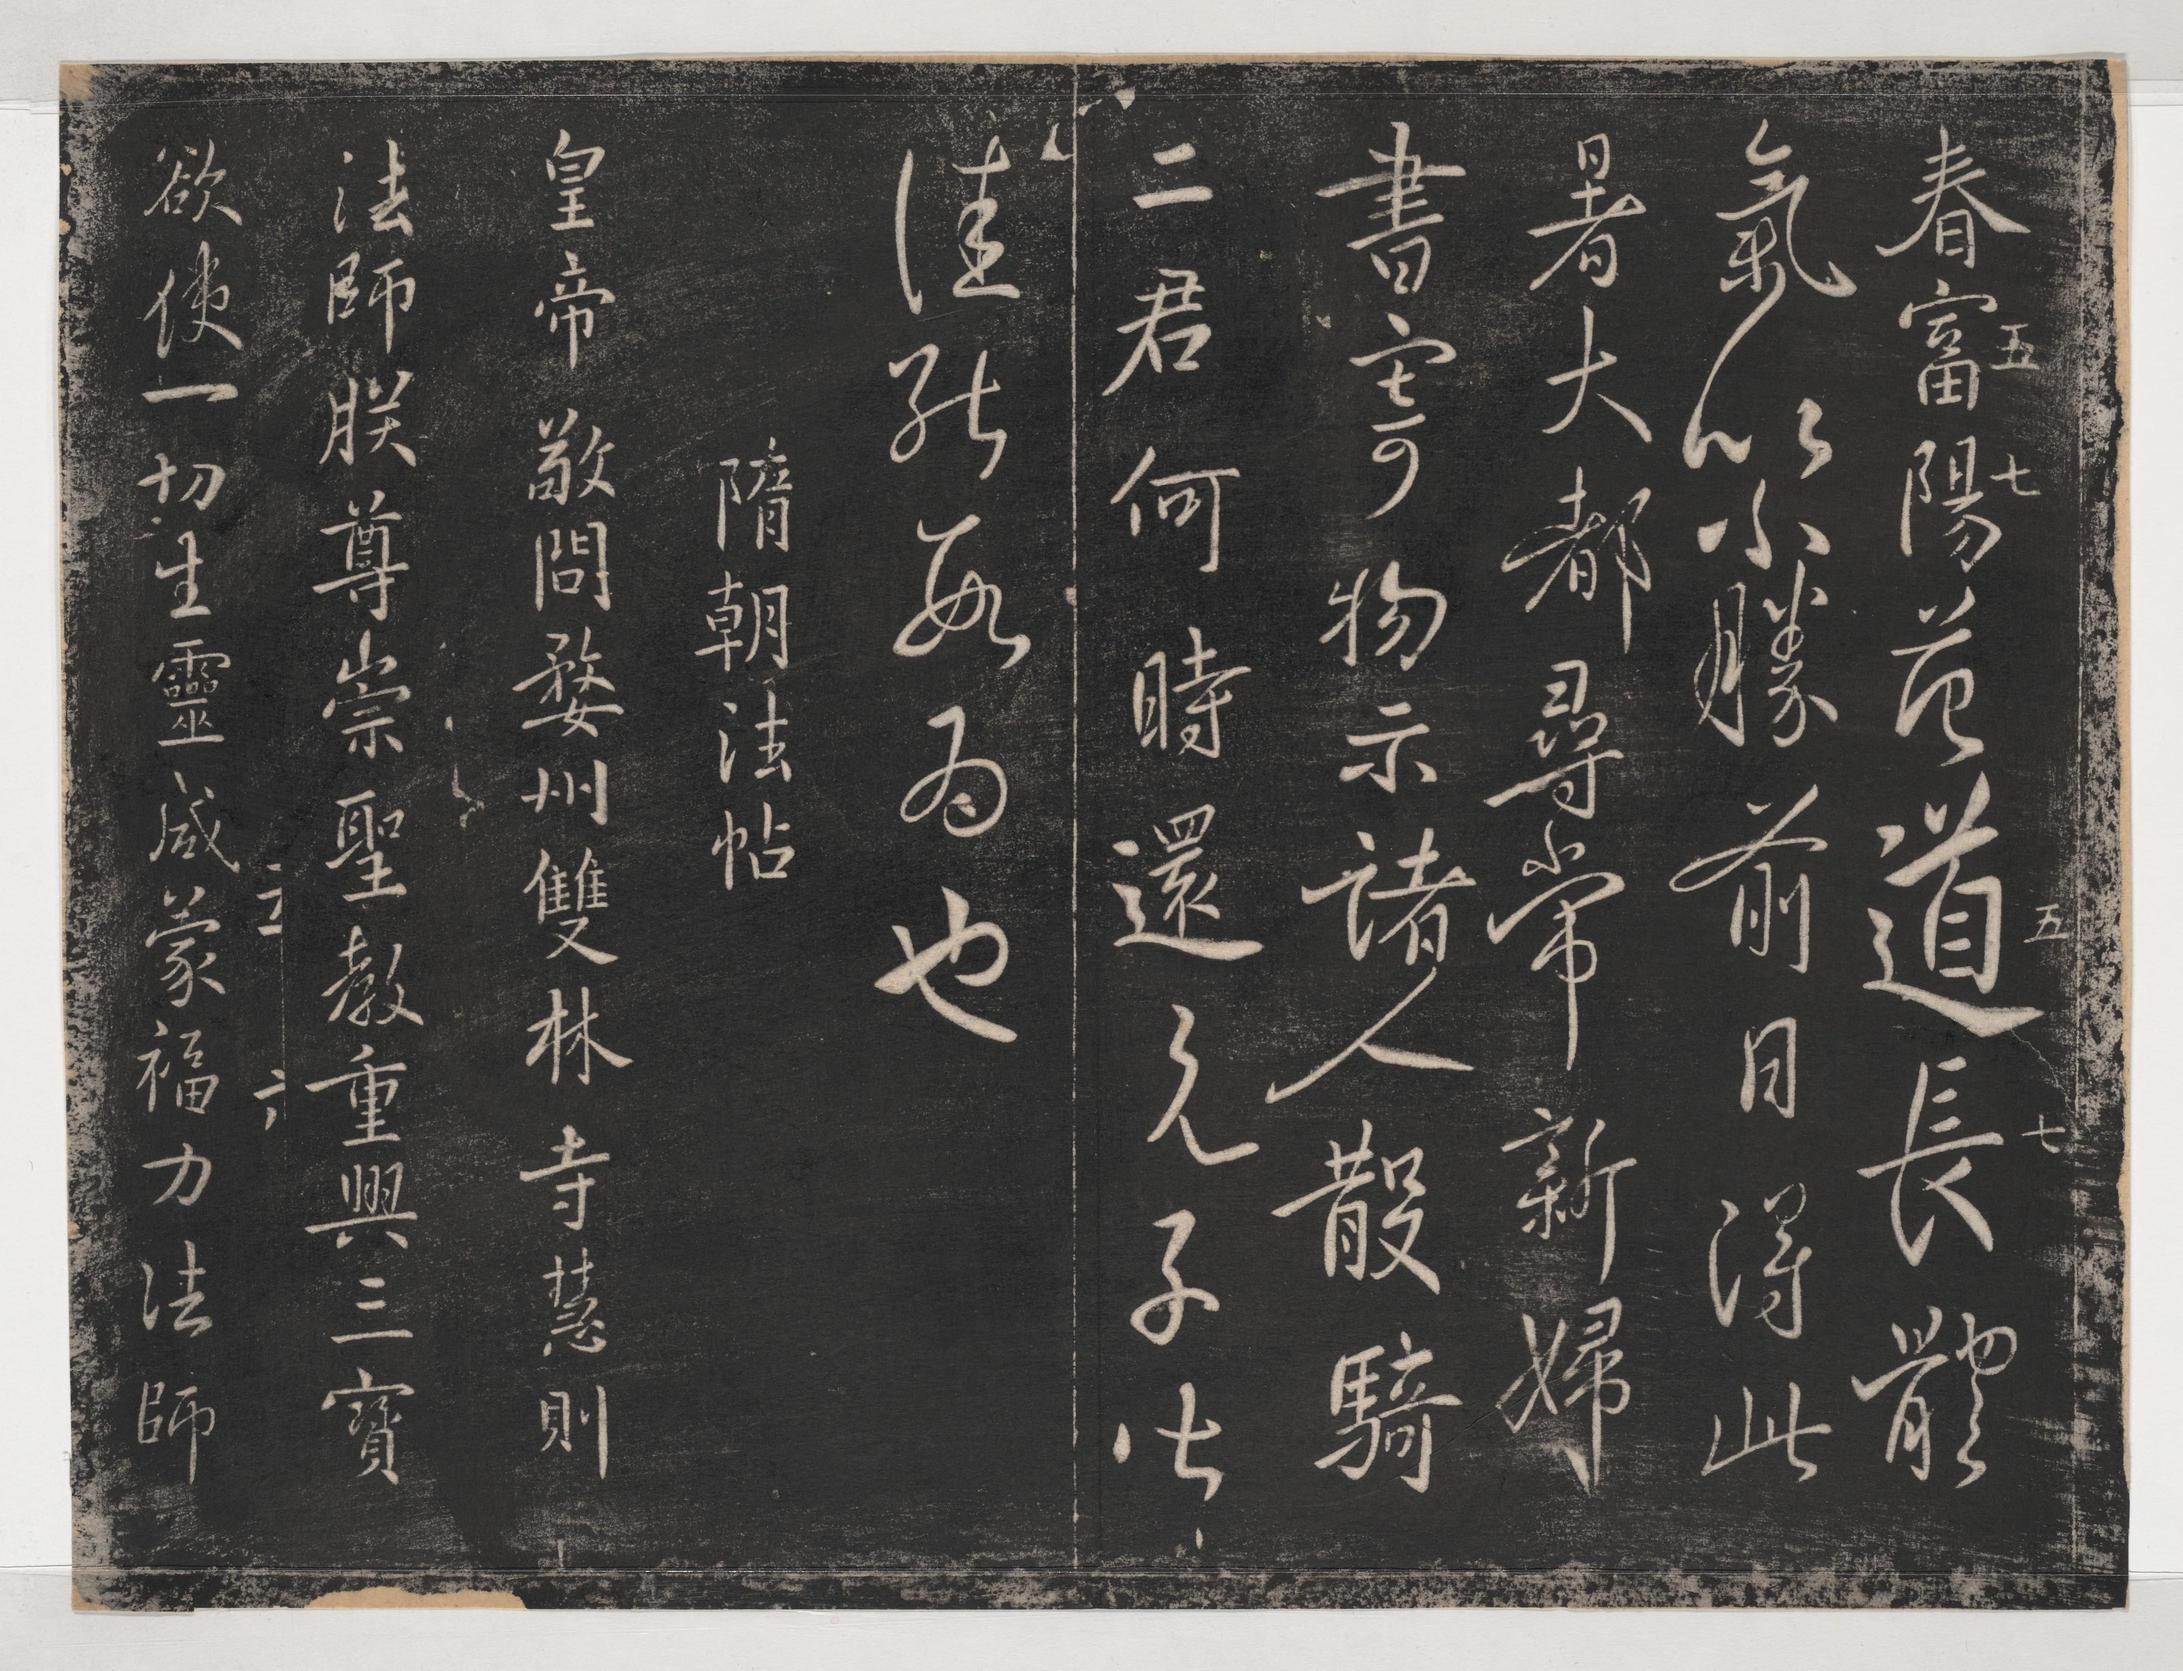 春富陽范道長體
五七
五七
氣似小勝前日得此
暑大都尋常新婦
書寄物示諸人散騎
二君何時還兄子比
佳能為也
隋朝法帖
皇帝敬問婺州雙林寺慧則
法師朕尊崇聖教重興三寶
六
欲使一切生靈咸蒙福力法師